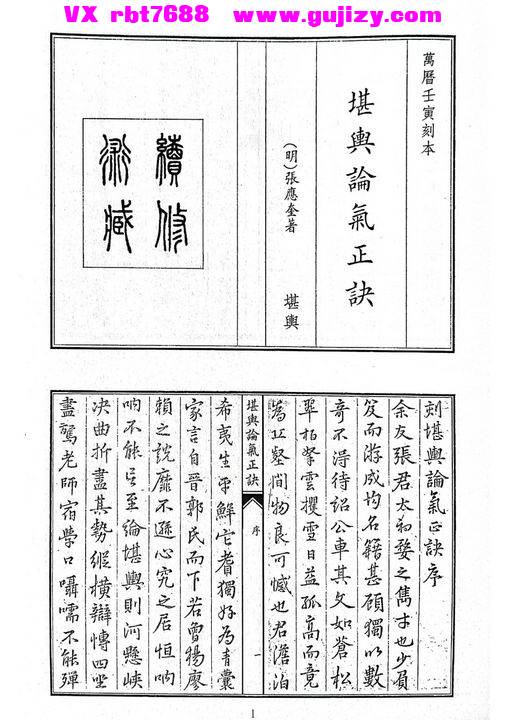 VX rbt7688 www.gujizy.com
萬曆壬寅刻本
堪輿論氣正訣
(明)張應奎著 堪輿
續修
術藏
刻堪輿論氣正訣序
余友張君太和婺之雋才也少負
笈而游成均名籍甚顧獨以數
奇不淂待詔公車其文如蒼松
翠柏擎雲攫雪日益孤高而竟
為丘壑間物良可慽也君澹泊
堪輿論氣正訣 序 一
希夷生平鮮它耆獨好為青囊
家言自晉郭氏而下若曾楊廖
賴之說靡不遜心究之居恒吶
吶不能言至論堪輿則河懸峽
决曲折盡其勢縱橫辯博四坐
盡驚老師宿學口囁嚅不能殫
1